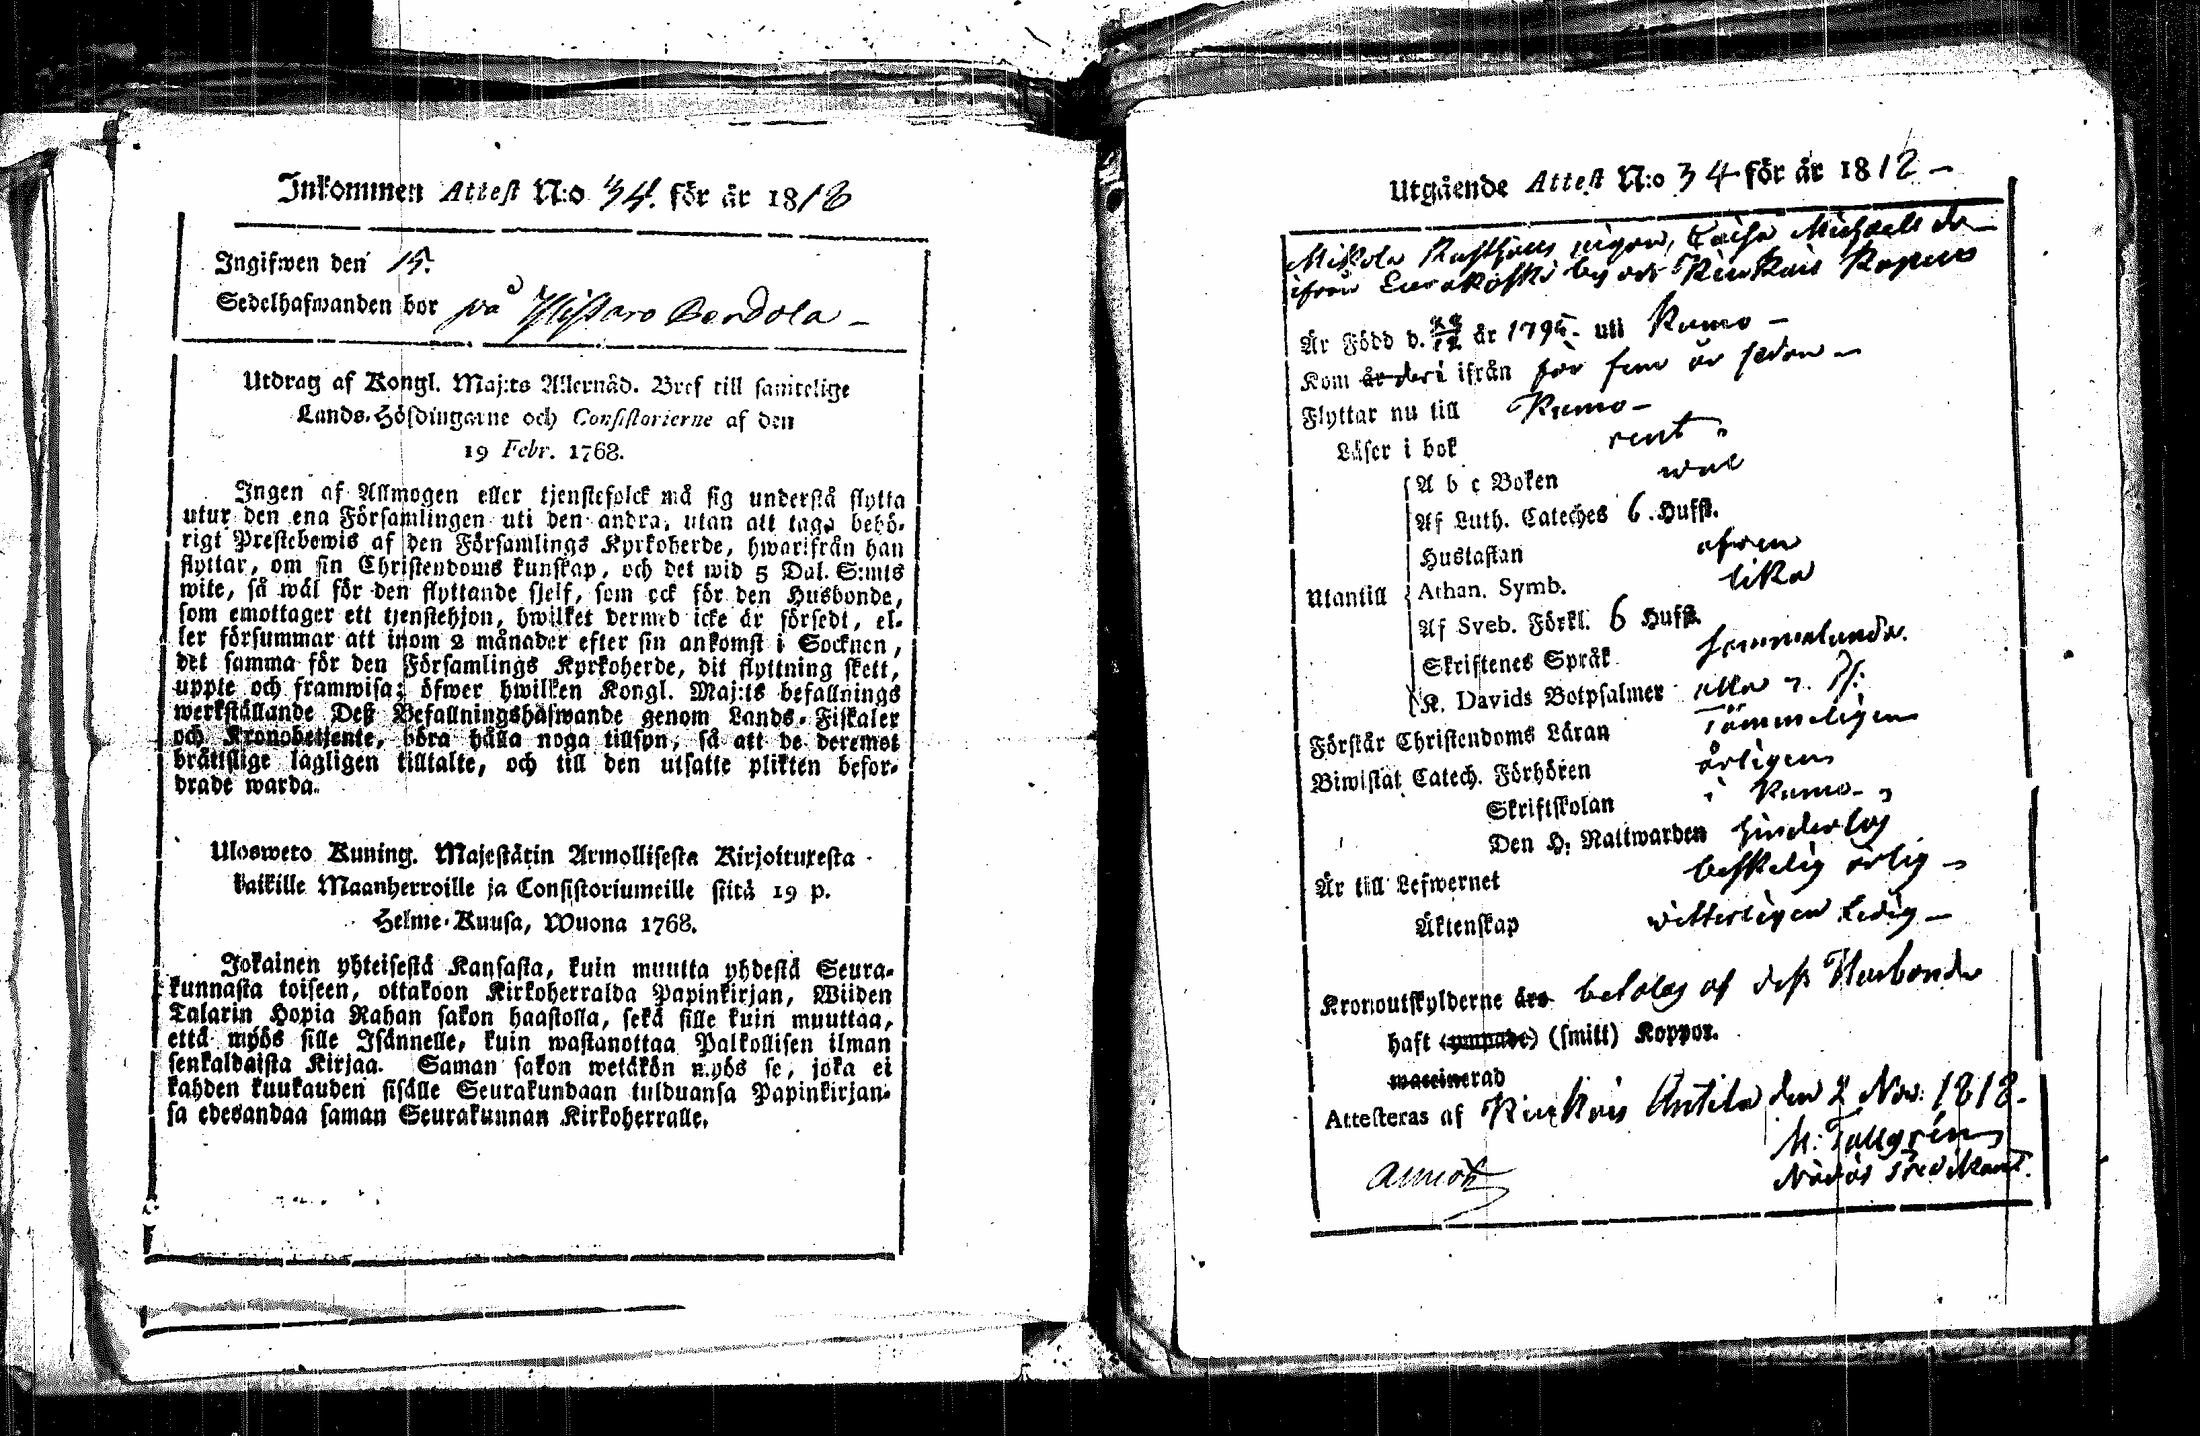 Inkommen Attest N:o 34. för år 1818
Ingifwen den 15.
Sedelhafwanden bor på
Utdrag af Kongl. Maj:ts Allernåd. Bref till samtelige
Lands-Höfdingarne och Consistorierne af den
19 Febr. 1768.
Ingen af Allmogen eller tjenstefolck må sig understå flytta
utur den ena Församlingen uti den andra, utan att taga behö-
rigt Prestebewis af den Församlings Kyrkoherde, hwarifrån han
flyttar, om sin Christendoms kunskap, och det wid 5 Dal. S:mts
wite, så wäl för den flyttande sjelf, som ock för den Husbonde,
som emottager ett tjenstehjon, hwilket dermed icke är försedt, el-
ler försummar att inom 2 månader efter sin ankomst i Socknen,
det samma för den Församlings Kyrkoherde, dit flyttning skett,
uppte och framwisa; öfwer hwilken Kongl. Maj:ts befallnings
werkställande Deß Befallningshafwande genom Lands-Fiskaler
och Kronobetjente, böra hålla noga tillsyn, så att de deremot
brättslige lagligen tilltalte, och till den utsatte plikten befor-
drade warda.
Ulosweto Kuning. Majestätin Armollisesta Kirjoituxesta
kaikille Maanherroille ja Consistoriumeille siitä 19 p.
Helme-Kuusa, Wuona 1768.
Jokainen yhteisestä Kansasta, kuin muutta yhdestä Seura-
kunnasta toiseen, ottakoon Kirkoherralda Papinkirjan, Wiiden
Talarin Hopia Rahan sakon haastolla, sekä sille kuin muuttaa,
että myös sille Isännelle, kuin wastanottaa Palkollisen ilman
senkaldaista Kirjaa. Saman sakon wetäkön myös se, joka ei
kahden kuukauden sisälle Seurakundaan tulduansa Papinkirjan-
sa edesandaa saman Seurakunnan Kirkoherralle.
Utgående Attest N:o 34 för år 1818 -
Mikola pigan, Caisa Michaels dr
ifrån by och Kiukais
Är Född d. år 1795. uti Kumo -
Kom år der i ifrån för fem år sedan -
Flyttar nu till Kumo -
Läser i bok rent
A b c Boken wäl
Af Luth. Cateches 6. Hufst.
Hustaflan afwen
Utantill Athan. Symb. lika
Af Sveb. Förkl. 6 Hufst.
Skriftenes Språk sammalunda.
K. Davids Botpsalmer alla 7. Ps:
Förstår Christendoms Läran tämmeligen
Biwistat Catech. Förhören årligen
Skriftskolan i Kumo -
Den H. Nattwarden hinderlös
Är till Lefwernet beskelig ärlig -
Äktenskap witterligen ledig -
Kronoutskylderne äro betalas af deß Husbonde
haft (ympade) (smitt) Koppor.
waccinerad
Attesteras af Kiukais Antila den 2 Nov: 1818.
M: Tallgrén
Nådårs Predikant.